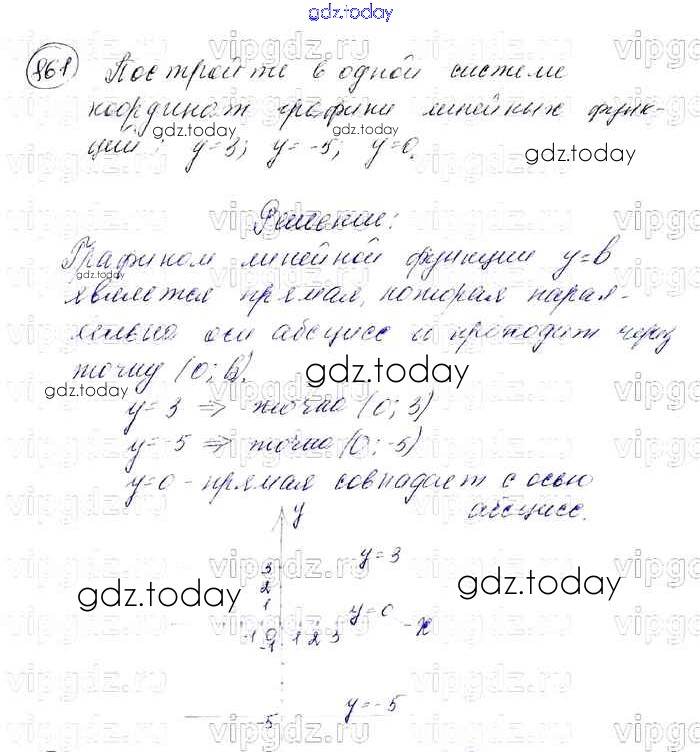 gdz.today
861 Постройте в одной системе
координат графики линейных функ-
gdz.today
ций: y=3; y=-5; y=0.
gdz.today
Решение:
Графиком линейной функции y=b
gdz.today
является прямая, которая парал-
лельна оси абсцисс и проходит через
точку (0; b).
gdz.today
gdz.today
y=3 => точка (0; 3)
y=-5 => точка (0; -5)
y=0 - прямая совпадает с осью
абсцисс.
y
3
y=3
2
gdz.today
gdz.today
1
y=0
-1 0 1 2 3
x
-1
y=-5
-5
vipgdz.ru